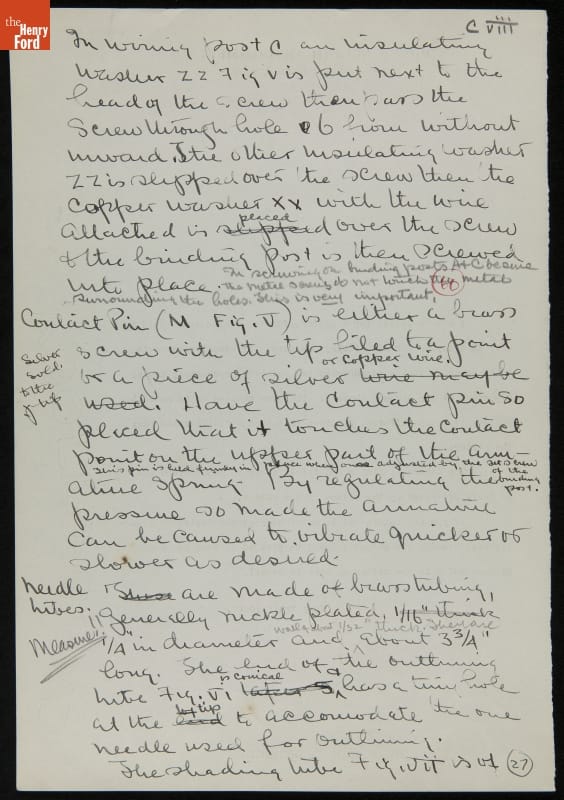 the
Henry
Ford
C VIII
In wiring post C an insulating
washer ZZ Fig V is put next to the
head of the screw then pass the
screw through hole b from without
inward. The other insulating washer
ZZ is slipped over the screw then the
Copper washer XX with the wire
placed
attached is slipped over the screw
& the binding post is then screwed
into place.
In screwing on binding posts A & C be sure
the metal screws do not touch the metal
surrounding the holes. This is very important.
Contact Pin (M Fig. V) is either a brass
screw with the tip filed to a point
or copper wire.
or a piece of silver wire may be
used. Have the Contact pin so
silver
sold.
to the
tip
placed that it touches the Contact
point on the upper part of the arm-
This pin is held firmly in place when once adjusted by the set screw
of the
binding
post.
ature Spring. By regulating the
pressure so made the armature
can be caused to vibrate quicker or
slower as desired.
Needle
tubes.
are made of brass tubing,
generally nickle plated, 1/16" thick
Measure!!
wall about 1/32" thick. They are
1/4" in diameter and about 3 3/4"
long. The end of the outlining
is conical &
tube Fig. VI has a tiny hole
tip
at the end to accomodate the one
needle used for outlining.
The shading tube Fig. VII is of
27